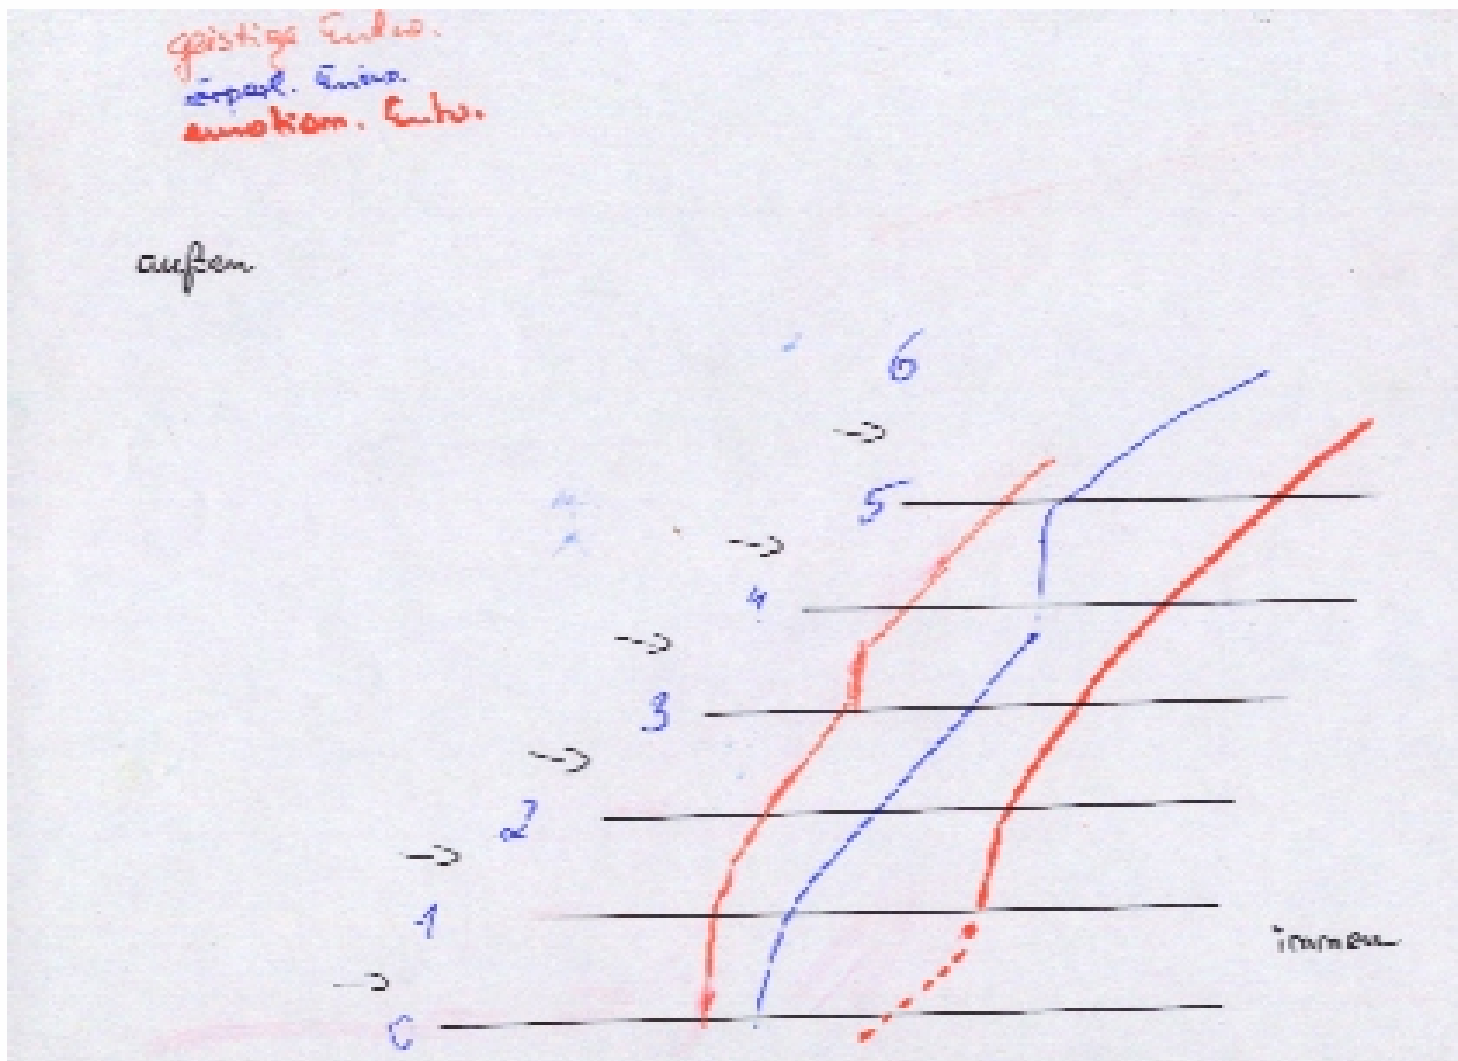 geistige Entw.
körperl. Entw.
emotion. Entw.
außen
6
5
4
3
2
1
innen
0